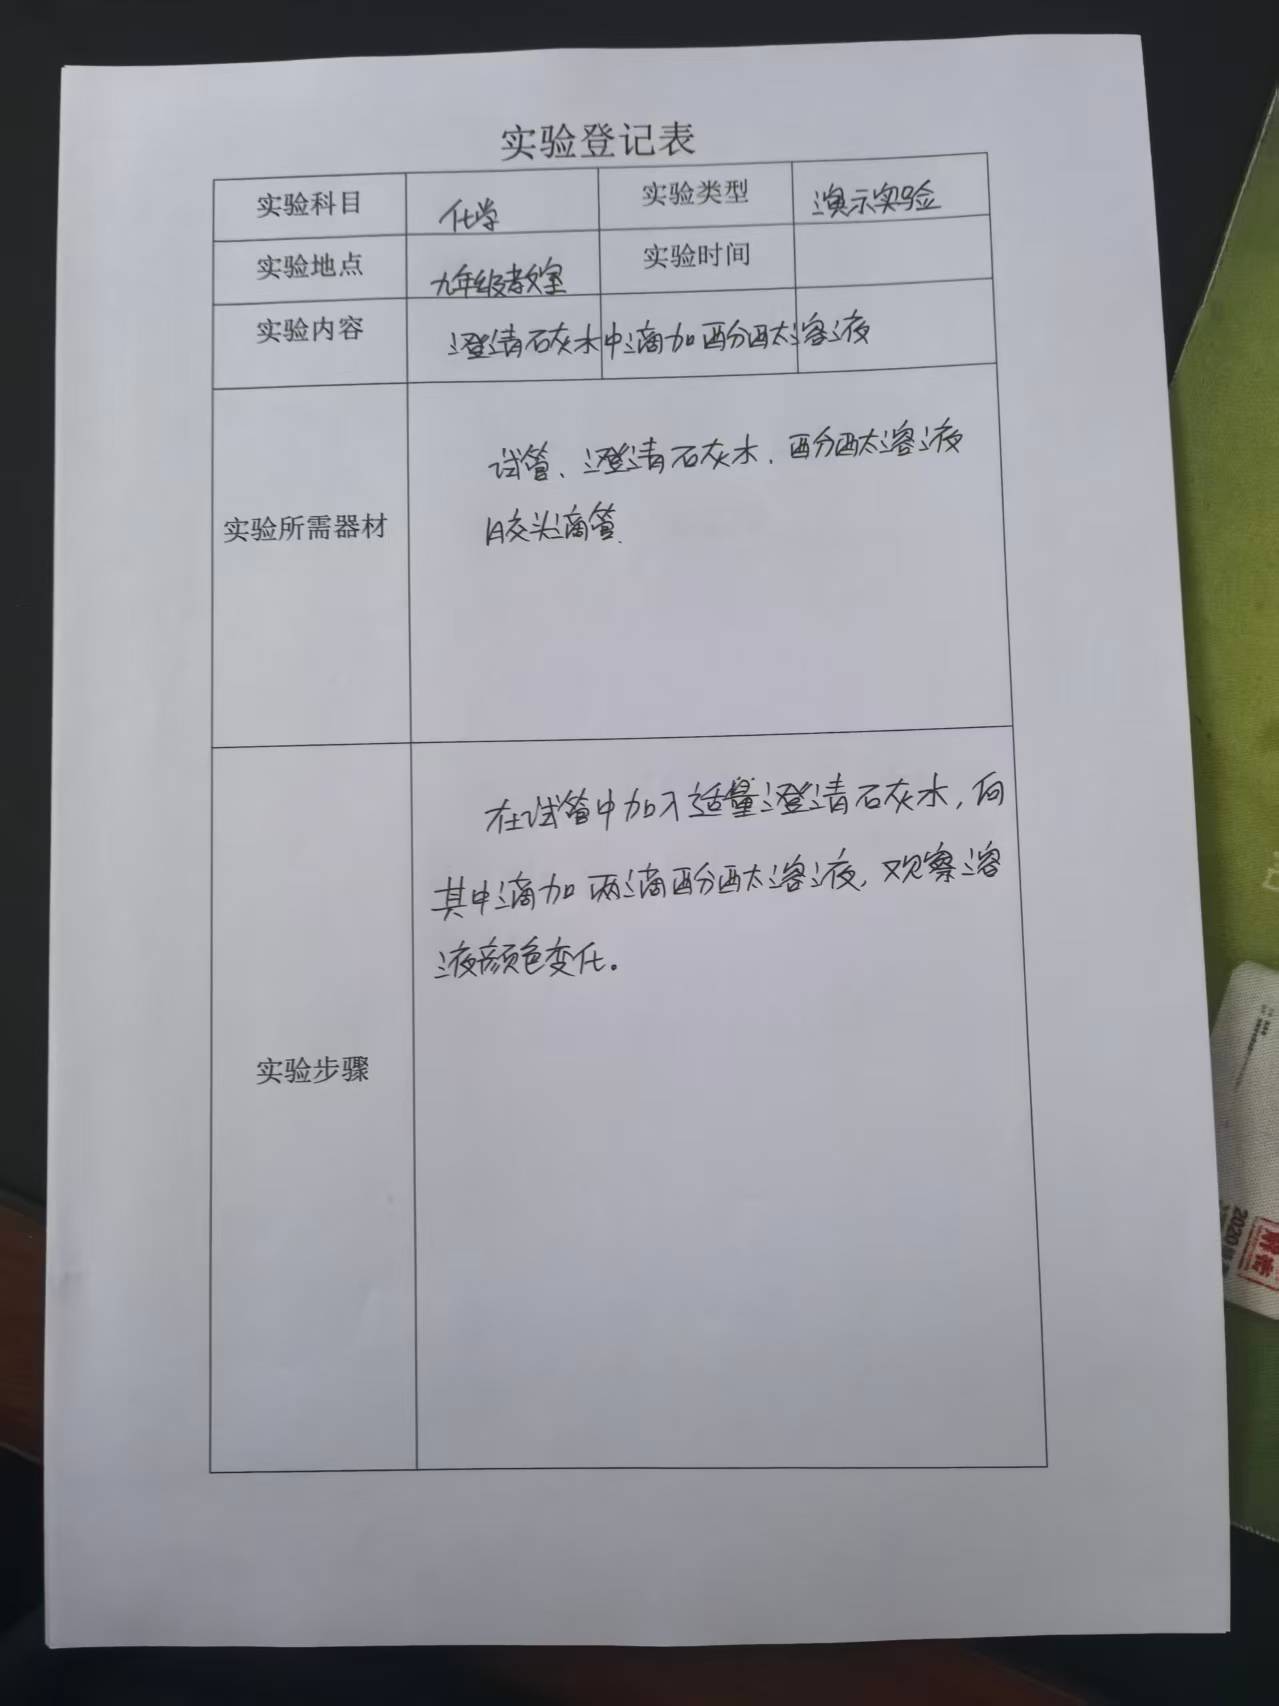 实验登记表
实验科目 化学 实验类型 演示实验
实验地点 九年级教室 实验时间
实验内容 澄清石灰水中滴加酚酞溶液
实验所需器材
试管、澄清石灰水、酚酞溶液
胶头滴管.
实验步骤
在试管中加入适量澄清石灰水,向
其中滴加两滴酚酞溶液,观察溶
液颜色变化。
2020